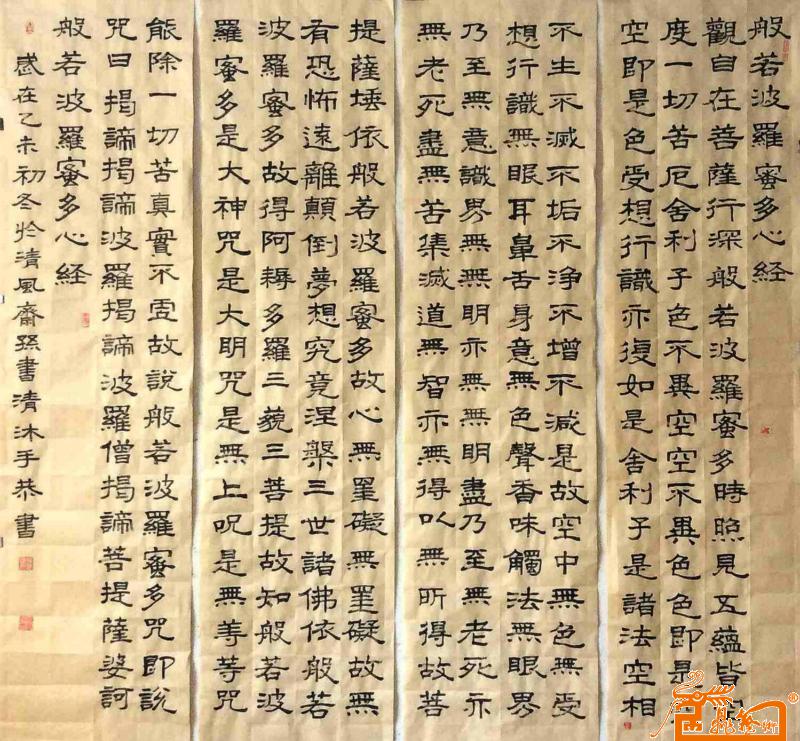 般若波羅蜜多心経
觀自在菩薩行深般若波羅蜜多時照見五蘊皆空
度一切苦厄舍利子色不異空空不異色色即是
空即是色受想行識亦復如是舍利子是諸法空相
不生不滅不垢不浄不增不減是故空中無色無受
想行識無眼耳鼻舌身意無色聲香味觸法無眼界
乃至無意識界無無明亦無無明盡乃至無老死亦
無老死盡無苦集滅道無智亦無得以無所得故菩
提薩埵依般若波羅蜜多故心無罣礙無罣礙故無
有恐怖遠離顛倒夢想究竟涅槃三世諸佛依般若
波羅蜜多故得阿耨多羅三藐三菩提故知般若波
羅蜜多是大神咒是大明咒是無上呪是無等等咒
能除一切苦真實不虛故說般若波羅蜜多咒即說
咒曰揭諦揭諦波羅揭諦波羅僧揭諦菩提薩婆訶
般若波羅蜜多心経
歲在乙未初冬於清風齋孫書清沐手恭書